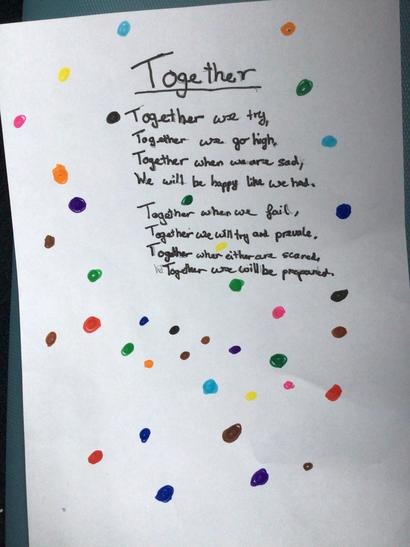 Together
Together we try,
Together we go high,
Together when we are sad,
We will be happy like we had.
Together when we fail,
Together we will try and prevale.
Together when either are scared,
Together we will be prepared.